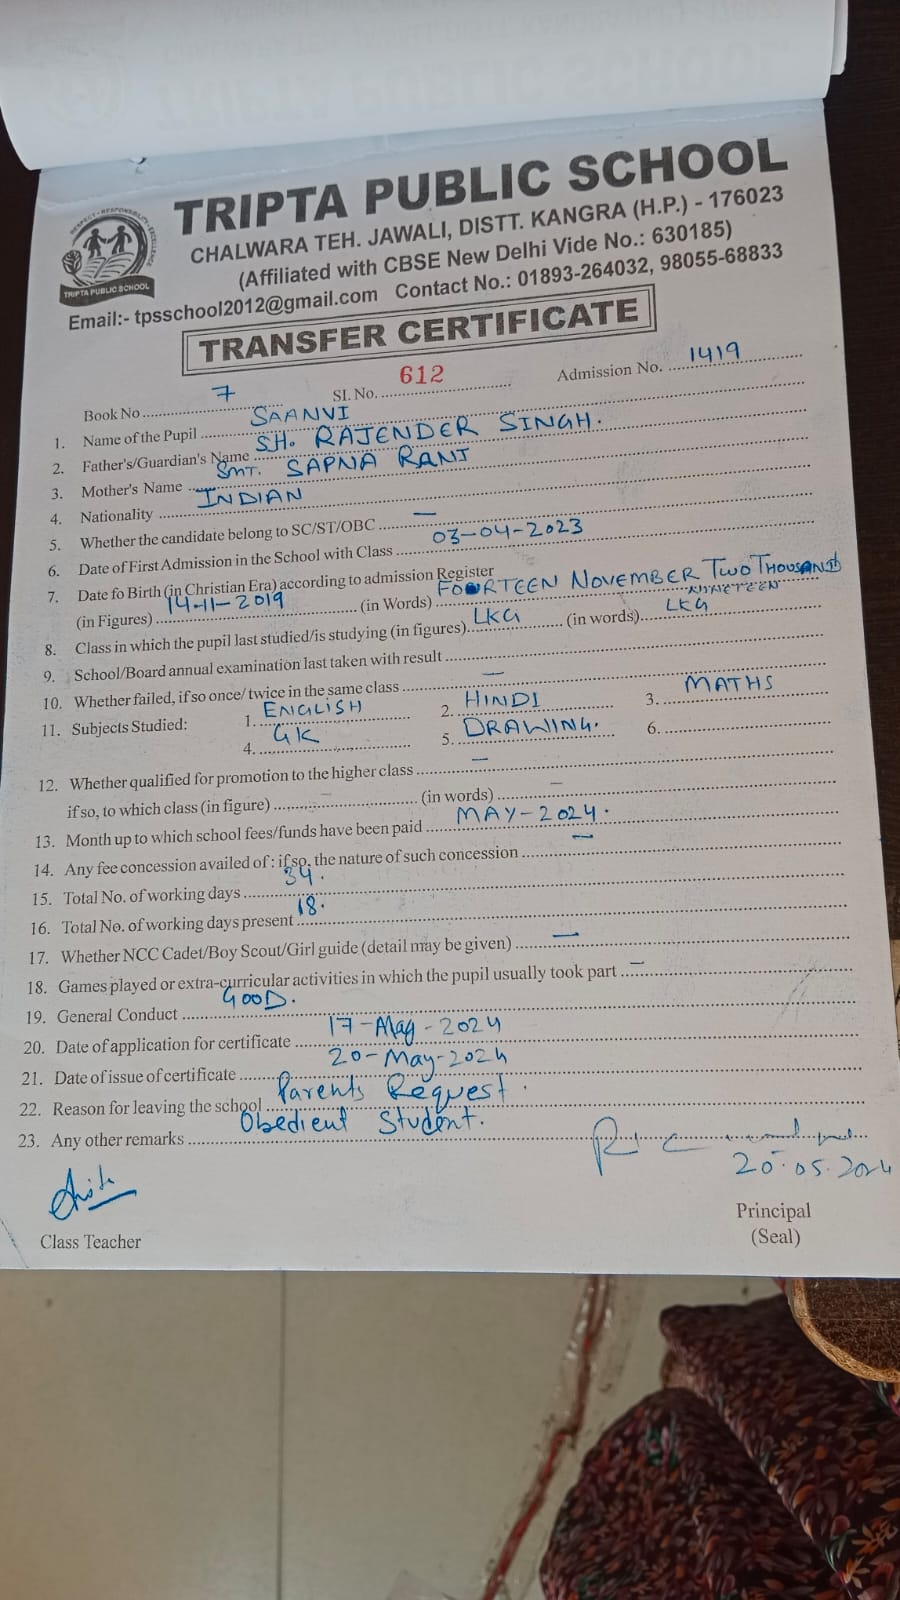 RESPECT-RESPONSIBILITY-EXCELLENCE
TRIPTA PUBLIC SCHOOL
TRIPTA PUBLIC SCHOOL
CHALWARA TEH. JAWALI, DISTT. KANGRA (H.P.) - 176023
(Affiliated with CBSE New Delhi Vide No.: 630185)
Email:- tpsschool2012@gmail.com Contact No.: 01893-264032, 98055-68833
TRANSFER CERTIFICATE
Book No 7 SI. No. 612 Admission No. 1419
1. Name of the Pupil SAANVI
2. Father's/Guardian's Name SH. RAJENDER SINGH.
3. Mother's Name SMT. SAPNA RANI
4. Nationality INDIAN
5. Whether the candidate belong to SC/ST/OBC —
6. Date of First Admission in the School with Class 03-04-2023
7. Date fo Birth (in Christian Era) according to admission Register
(in Figures) 14-11-2019 (in Words) FOURTEEN NOVEMBER TWO THOUSAND NINETEEN
8. Class in which the pupil last studied/is studying (in figures) LKG (in words) LKG
9. School/Board annual examination last taken with result
10. Whether failed, if so once/ twice in the same class —
11. Subjects Studied: 1. ENGLISH 2. HINDI 3. MATHS
4. GK 5. DRAWING. 6.
12. Whether qualified for promotion to the higher class —
if so, to which class (in figure) — (in words) —
13. Month up to which school fees/funds have been paid MAY-2024.
14. Any fee concession availed of : if so, the nature of such concession —
15. Total No. of working days 34.
16. Total No. of working days present 18.
17. Whether NCC Cadet/Boy Scout/Girl guide (detail may be given) —
18. Games played or extra-curricular activities in which the pupil usually took part —
19. General Conduct GOOD.
20. Date of application for certificate 17-May-2024
21. Date of issue of certificate 20-May-2024
22. Reason for leaving the school Parents Request.
23. Any other remarks Obedient Student.
20.05.2024
Class Teacher
Principal
(Seal)